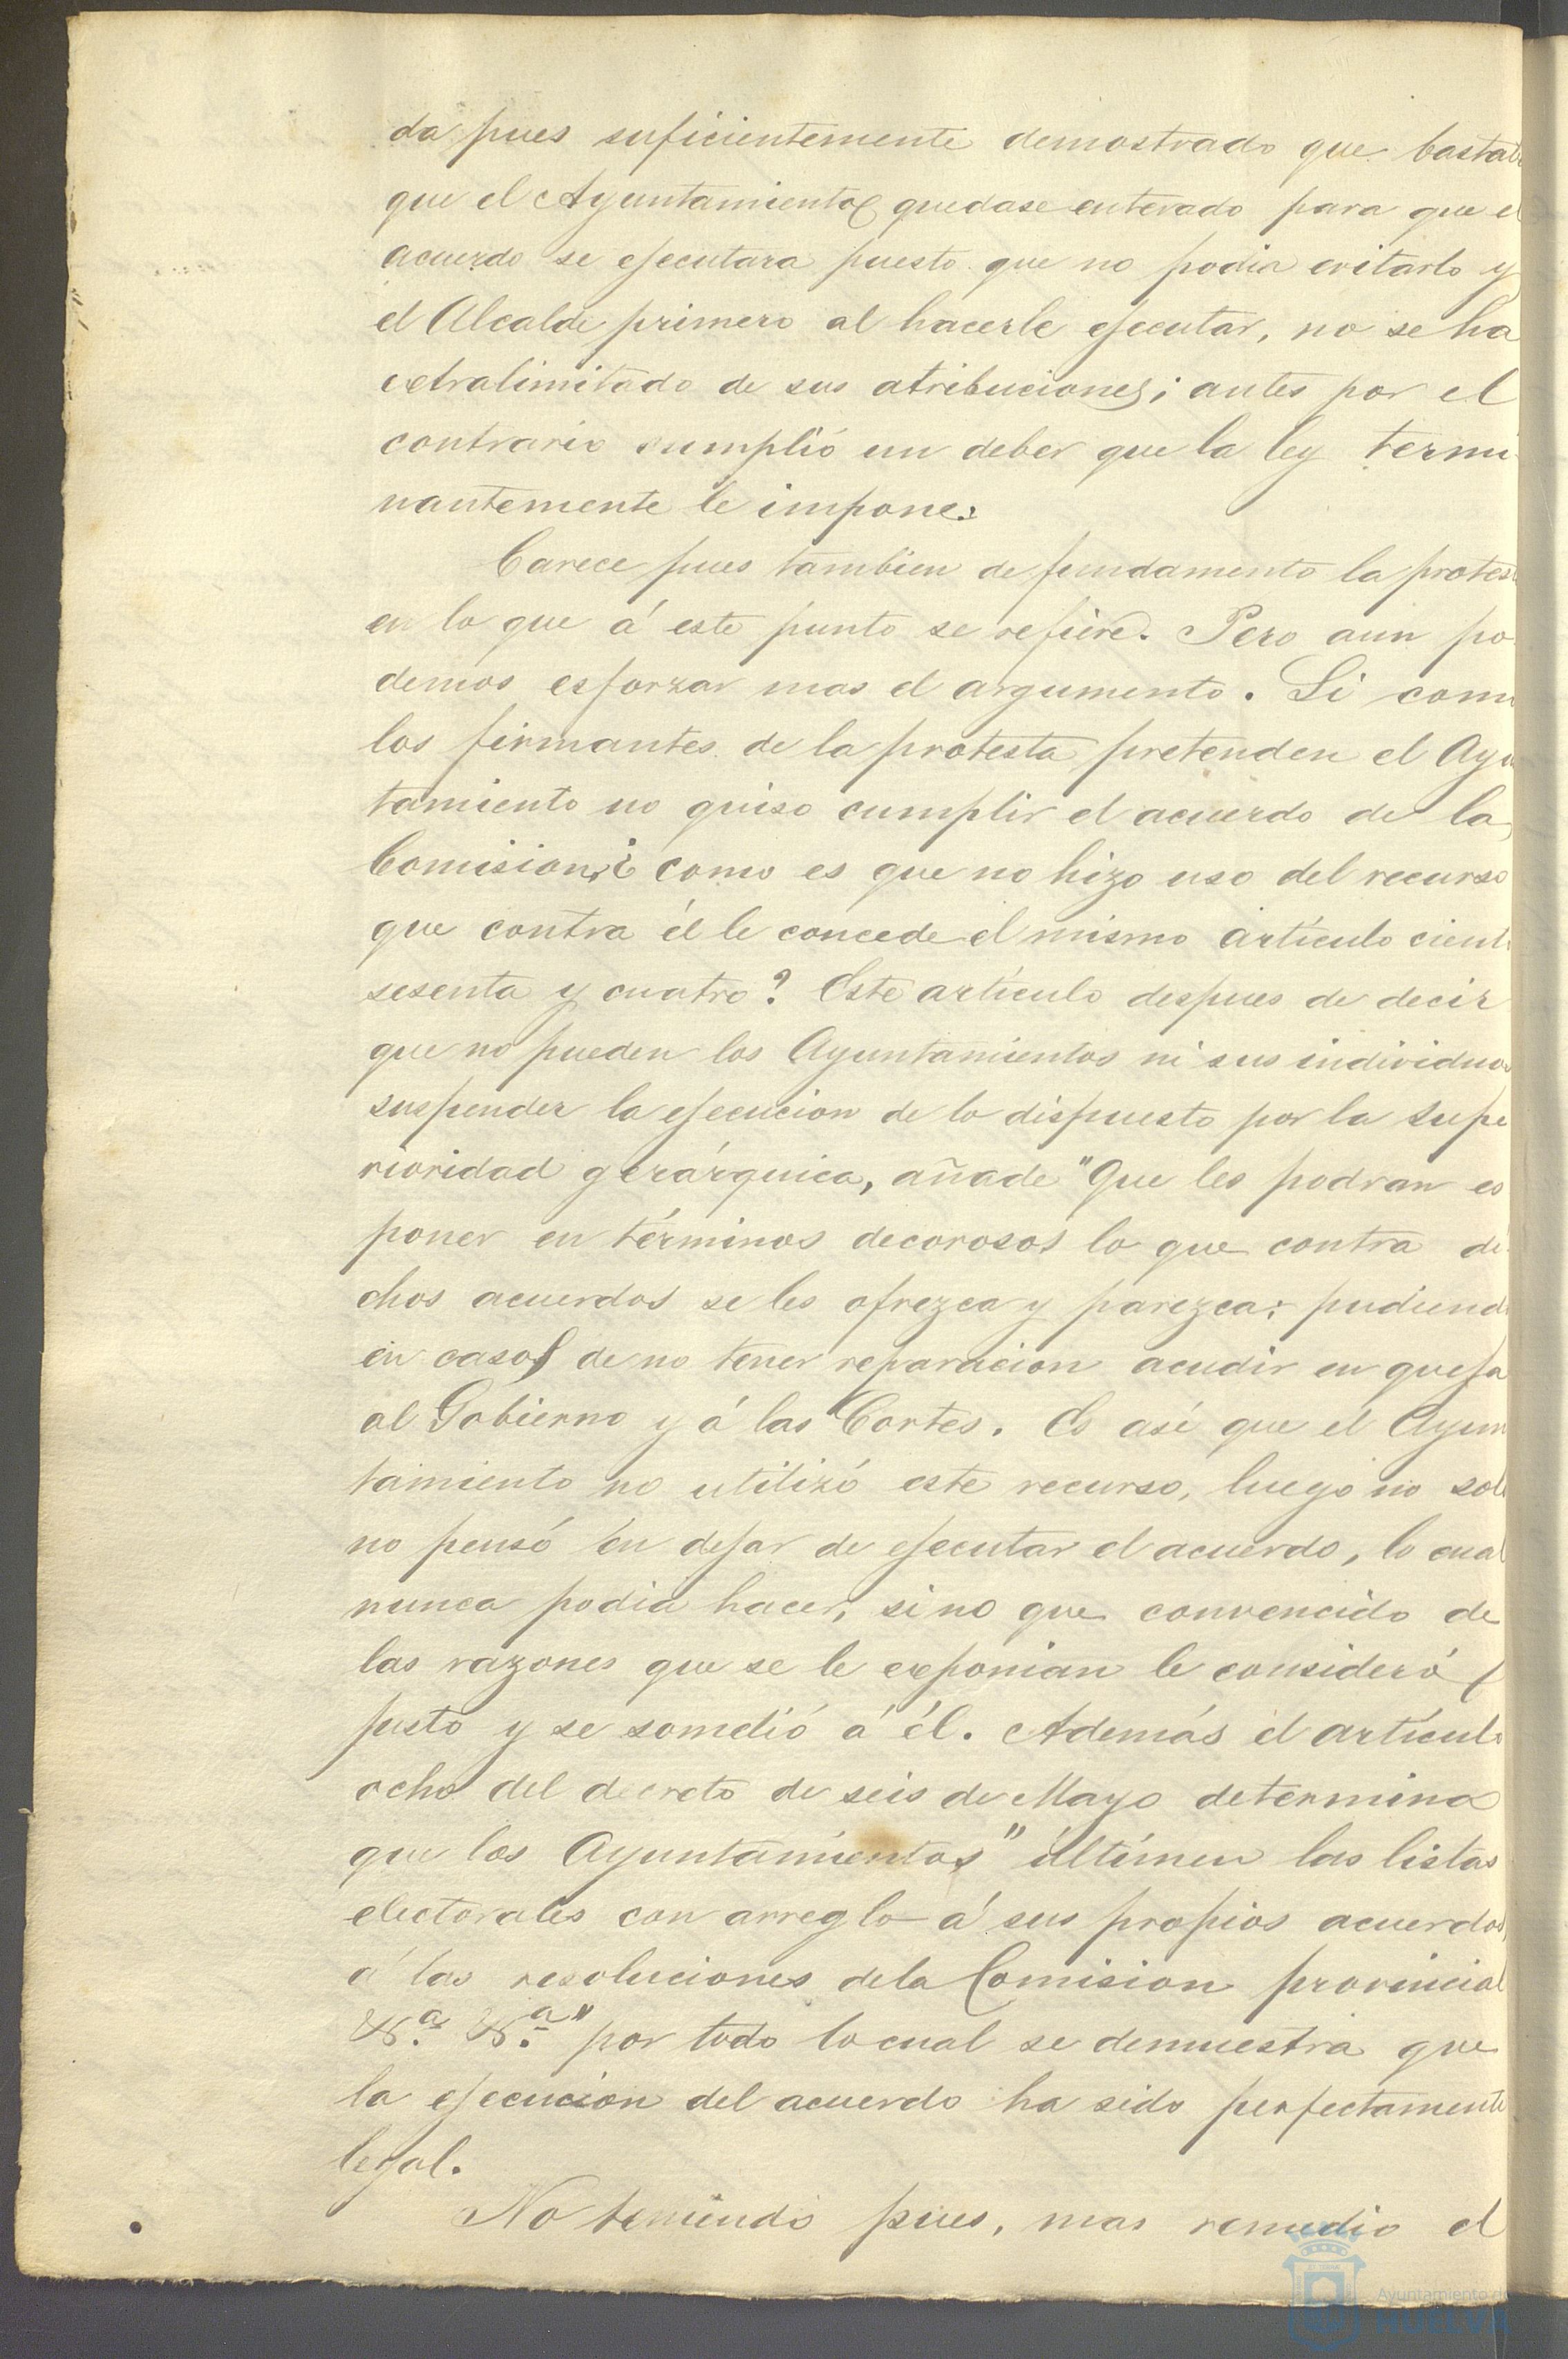 da pues suficientemente demostrado que bastab
que el Ayuntamiento quedase enterado para que el
acuerdo se ejecutara puesto que no podia evitarlo y
el Alcalde primero al hacerle ejecutar, no se ha
extralimitado de sus atribuciones; antes por el
contrario cumplió un deber que la ley termi
nantemente le impone.
Carece pues tambien de fundamento la protes
en lo que á este punto se refiere. Pero aun po
demos esforzar mas el argumento. Si com
los firmantes de la protesta pretenden el Ayu
tamiento no quiso cumplir el acuerdo de la
Comision ¿ como es que no hizo uso del recurso
que contra él le concede el mismo artículo cient
sesenta y cuatro? Este artículo despues de decir
que no pueden los Ayuntamientos ni sus individuos
suspender la ejecucion de lo dispuesto por la supe
rioridad gerárquica, añade "Que les podran es
poner en términos decorosos lo que contra di
chos acuerdos se les ofrezca y parezca; pudiend
en caso de no tener reparacion acudir en queja
al Gobierno y á las Cortes. Es asi que el Ayun
tamiento no utilizó este recurso, luego no sol
no pensó en dejar de ejecutar el acuerdo, lo cual
nunca podia hacer, sino que convencido de
las razones que se le exponian le consideró
justo y se somedió á él. Además el artículo
ocho del decreto de seis de Mayo determina
que los Ayuntamientos" últimen las listas
electorales con arreglo á sus propios acuerdos
á las resoluciones de la Comision provincial
&.ª &.ª" por todo lo cual se demuestra que
la ejecucion del acuerdo ha sido perfectamente
legal.
No teniendo pues, mas remedio el
Ayuntamiento de
HUELVA